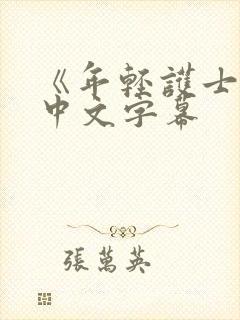 《年輕護士
中文字幕
張萬英